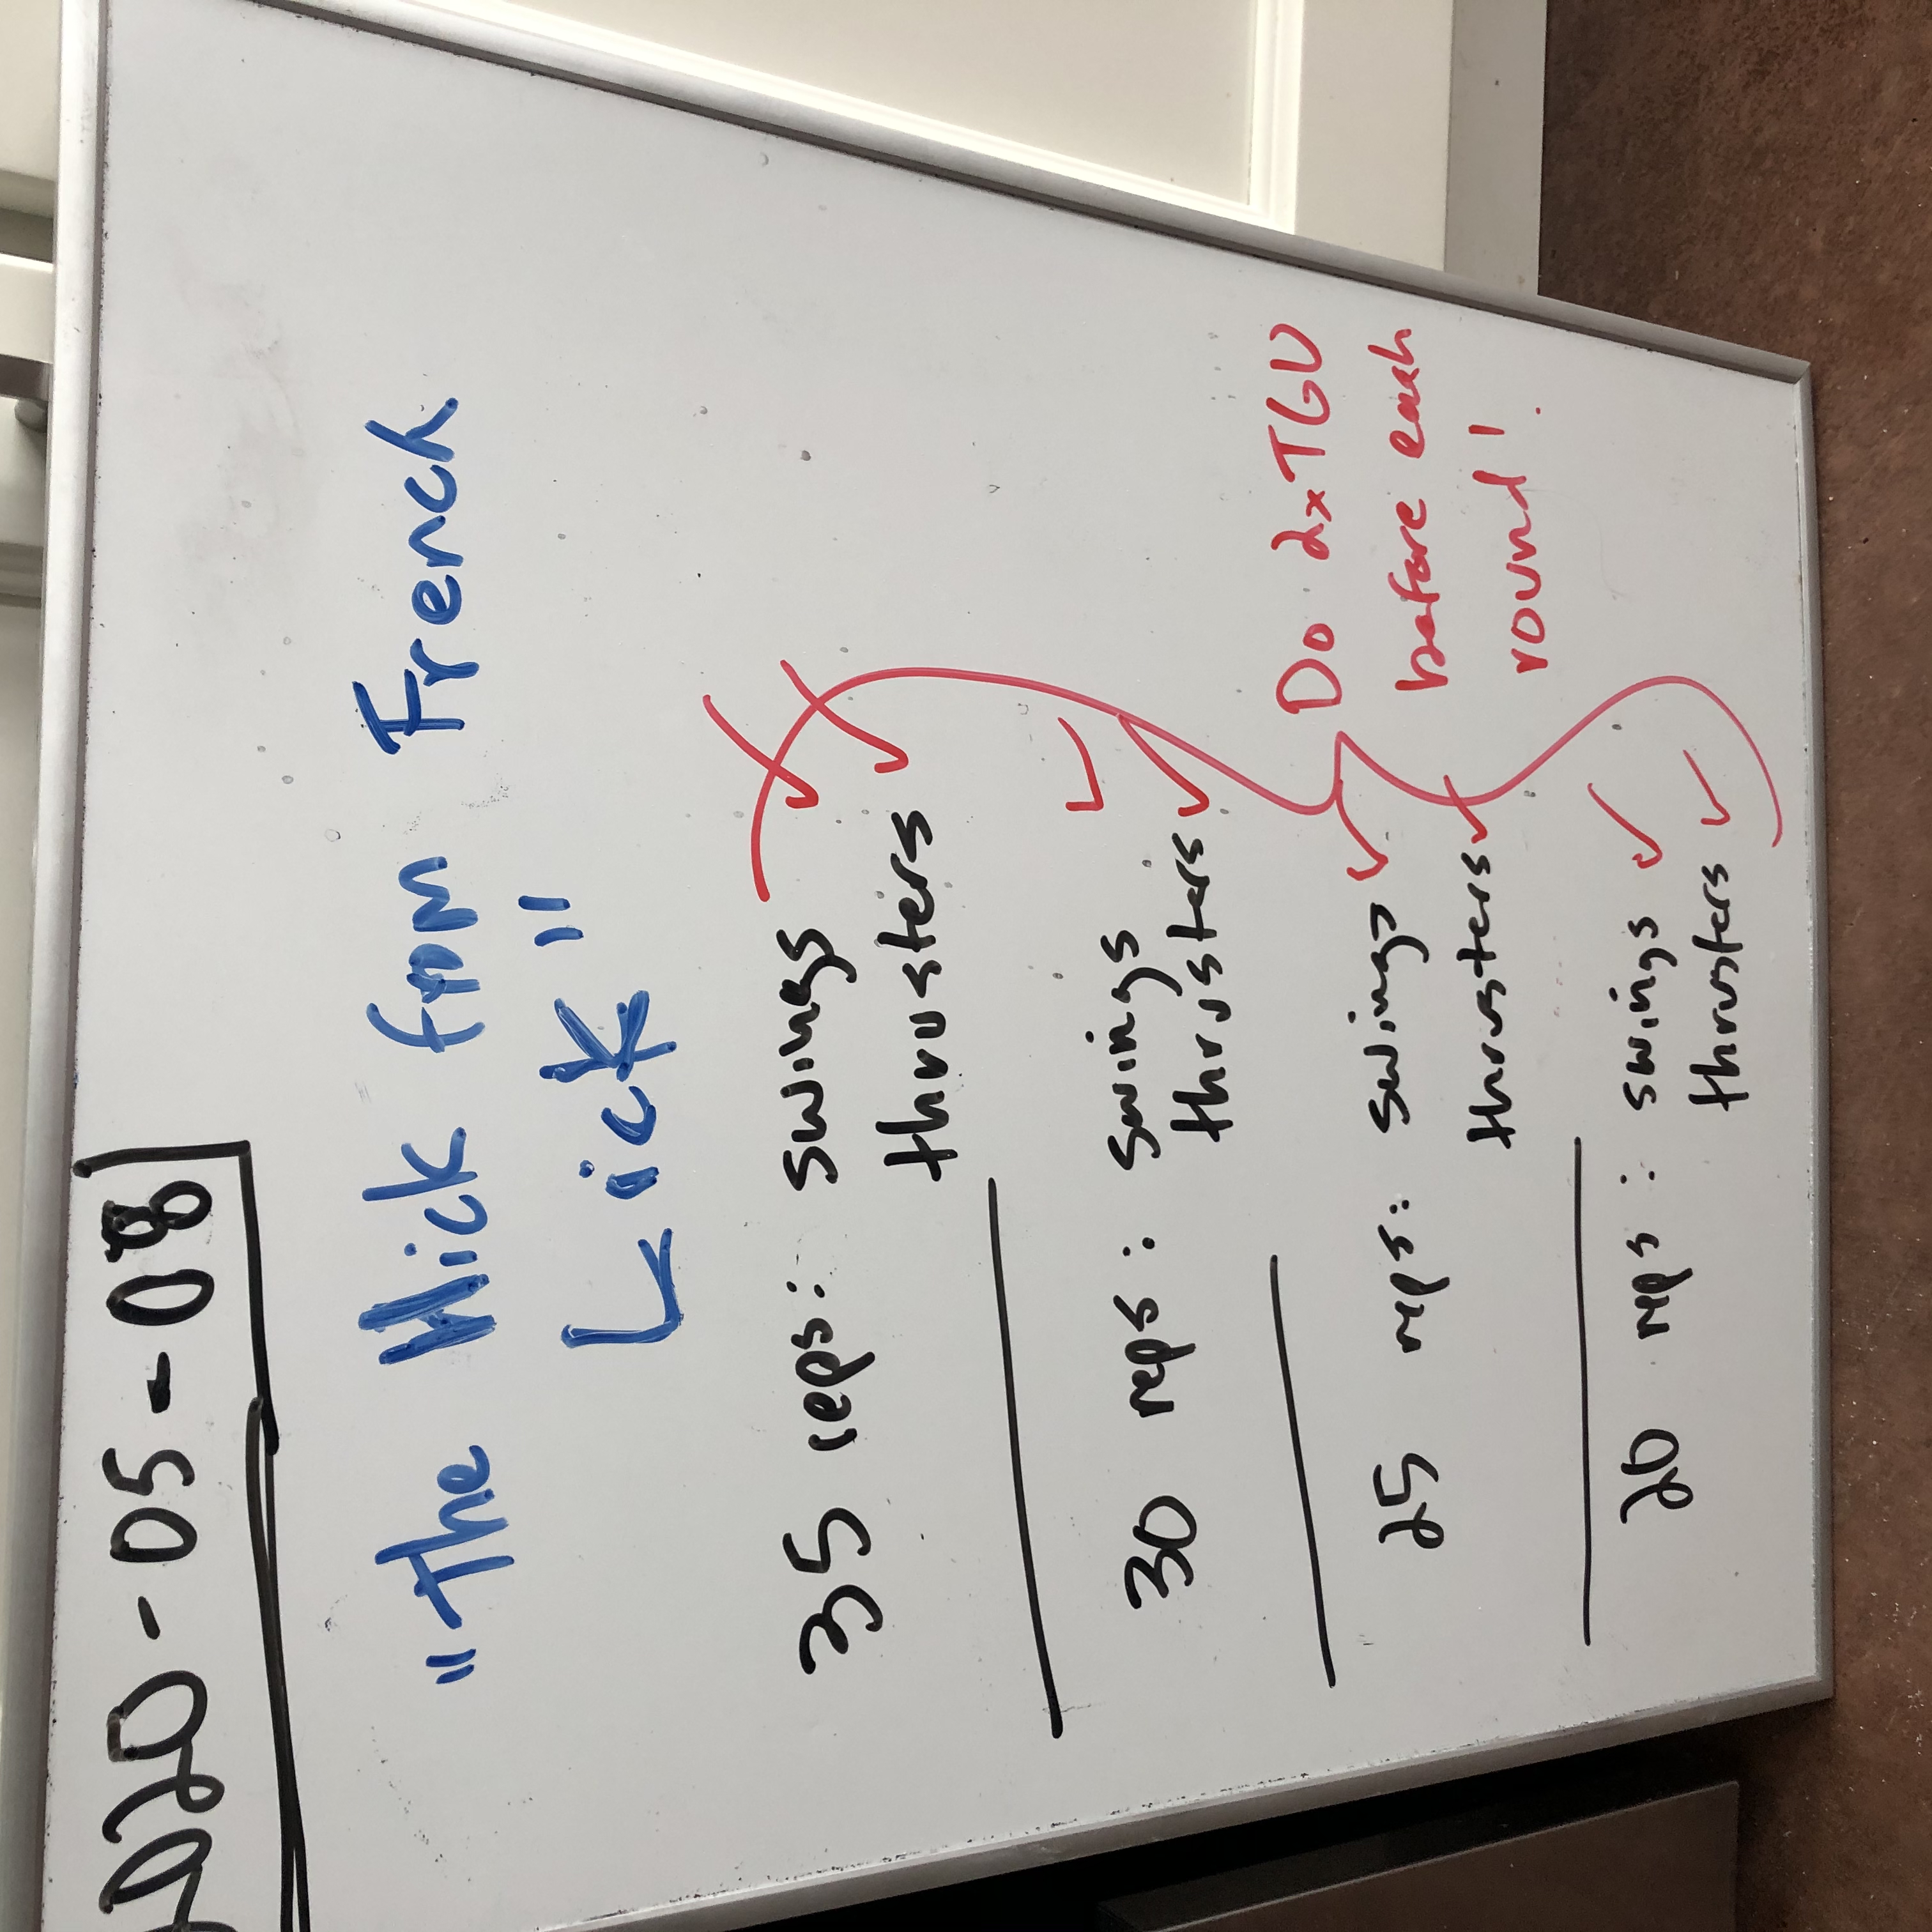 2020-05-08
"The Hick from French
Lick"
35 reps: swings
thrusters
30 reps: swings
thrusters
25 reps: swings
thrusters
20 reps: swings
thrusters
Do 2xTGU
before each
round!